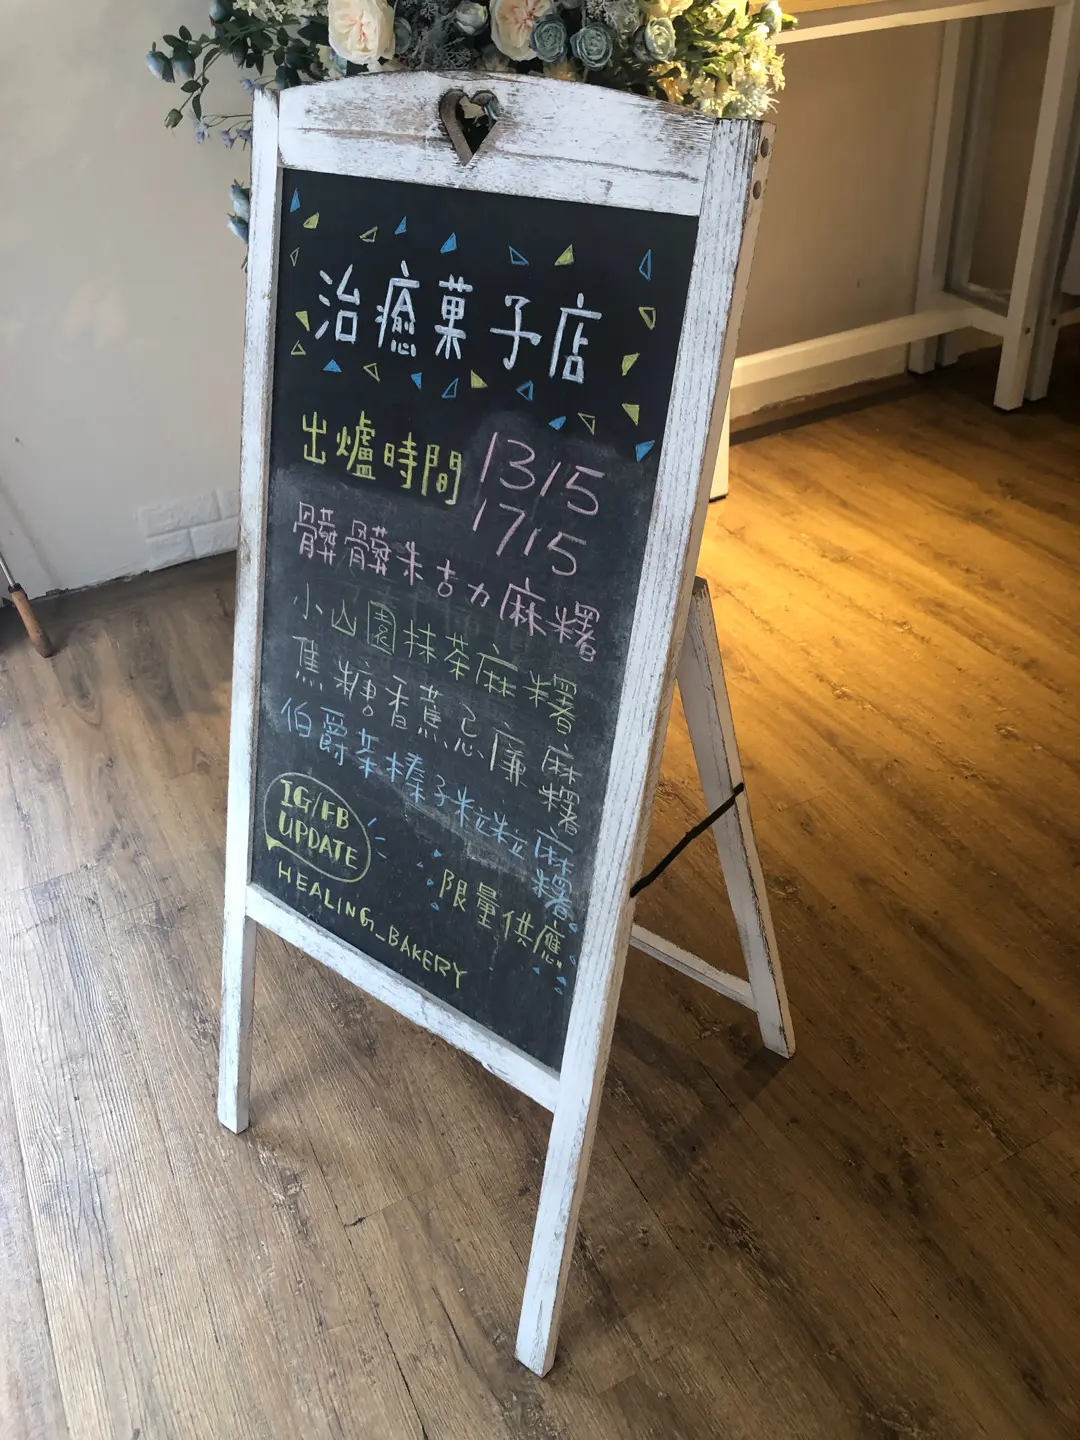 治癒菓子店
出爐時間 1315
1715
髒髒朱古力麻糬
小山園抹茶麻糬
焦糖香蕉忌廉麻糬
伯爵茶榛子粒粒麻糬
IG/FB
UPDATE
限量供應
HEALING_BAKERY